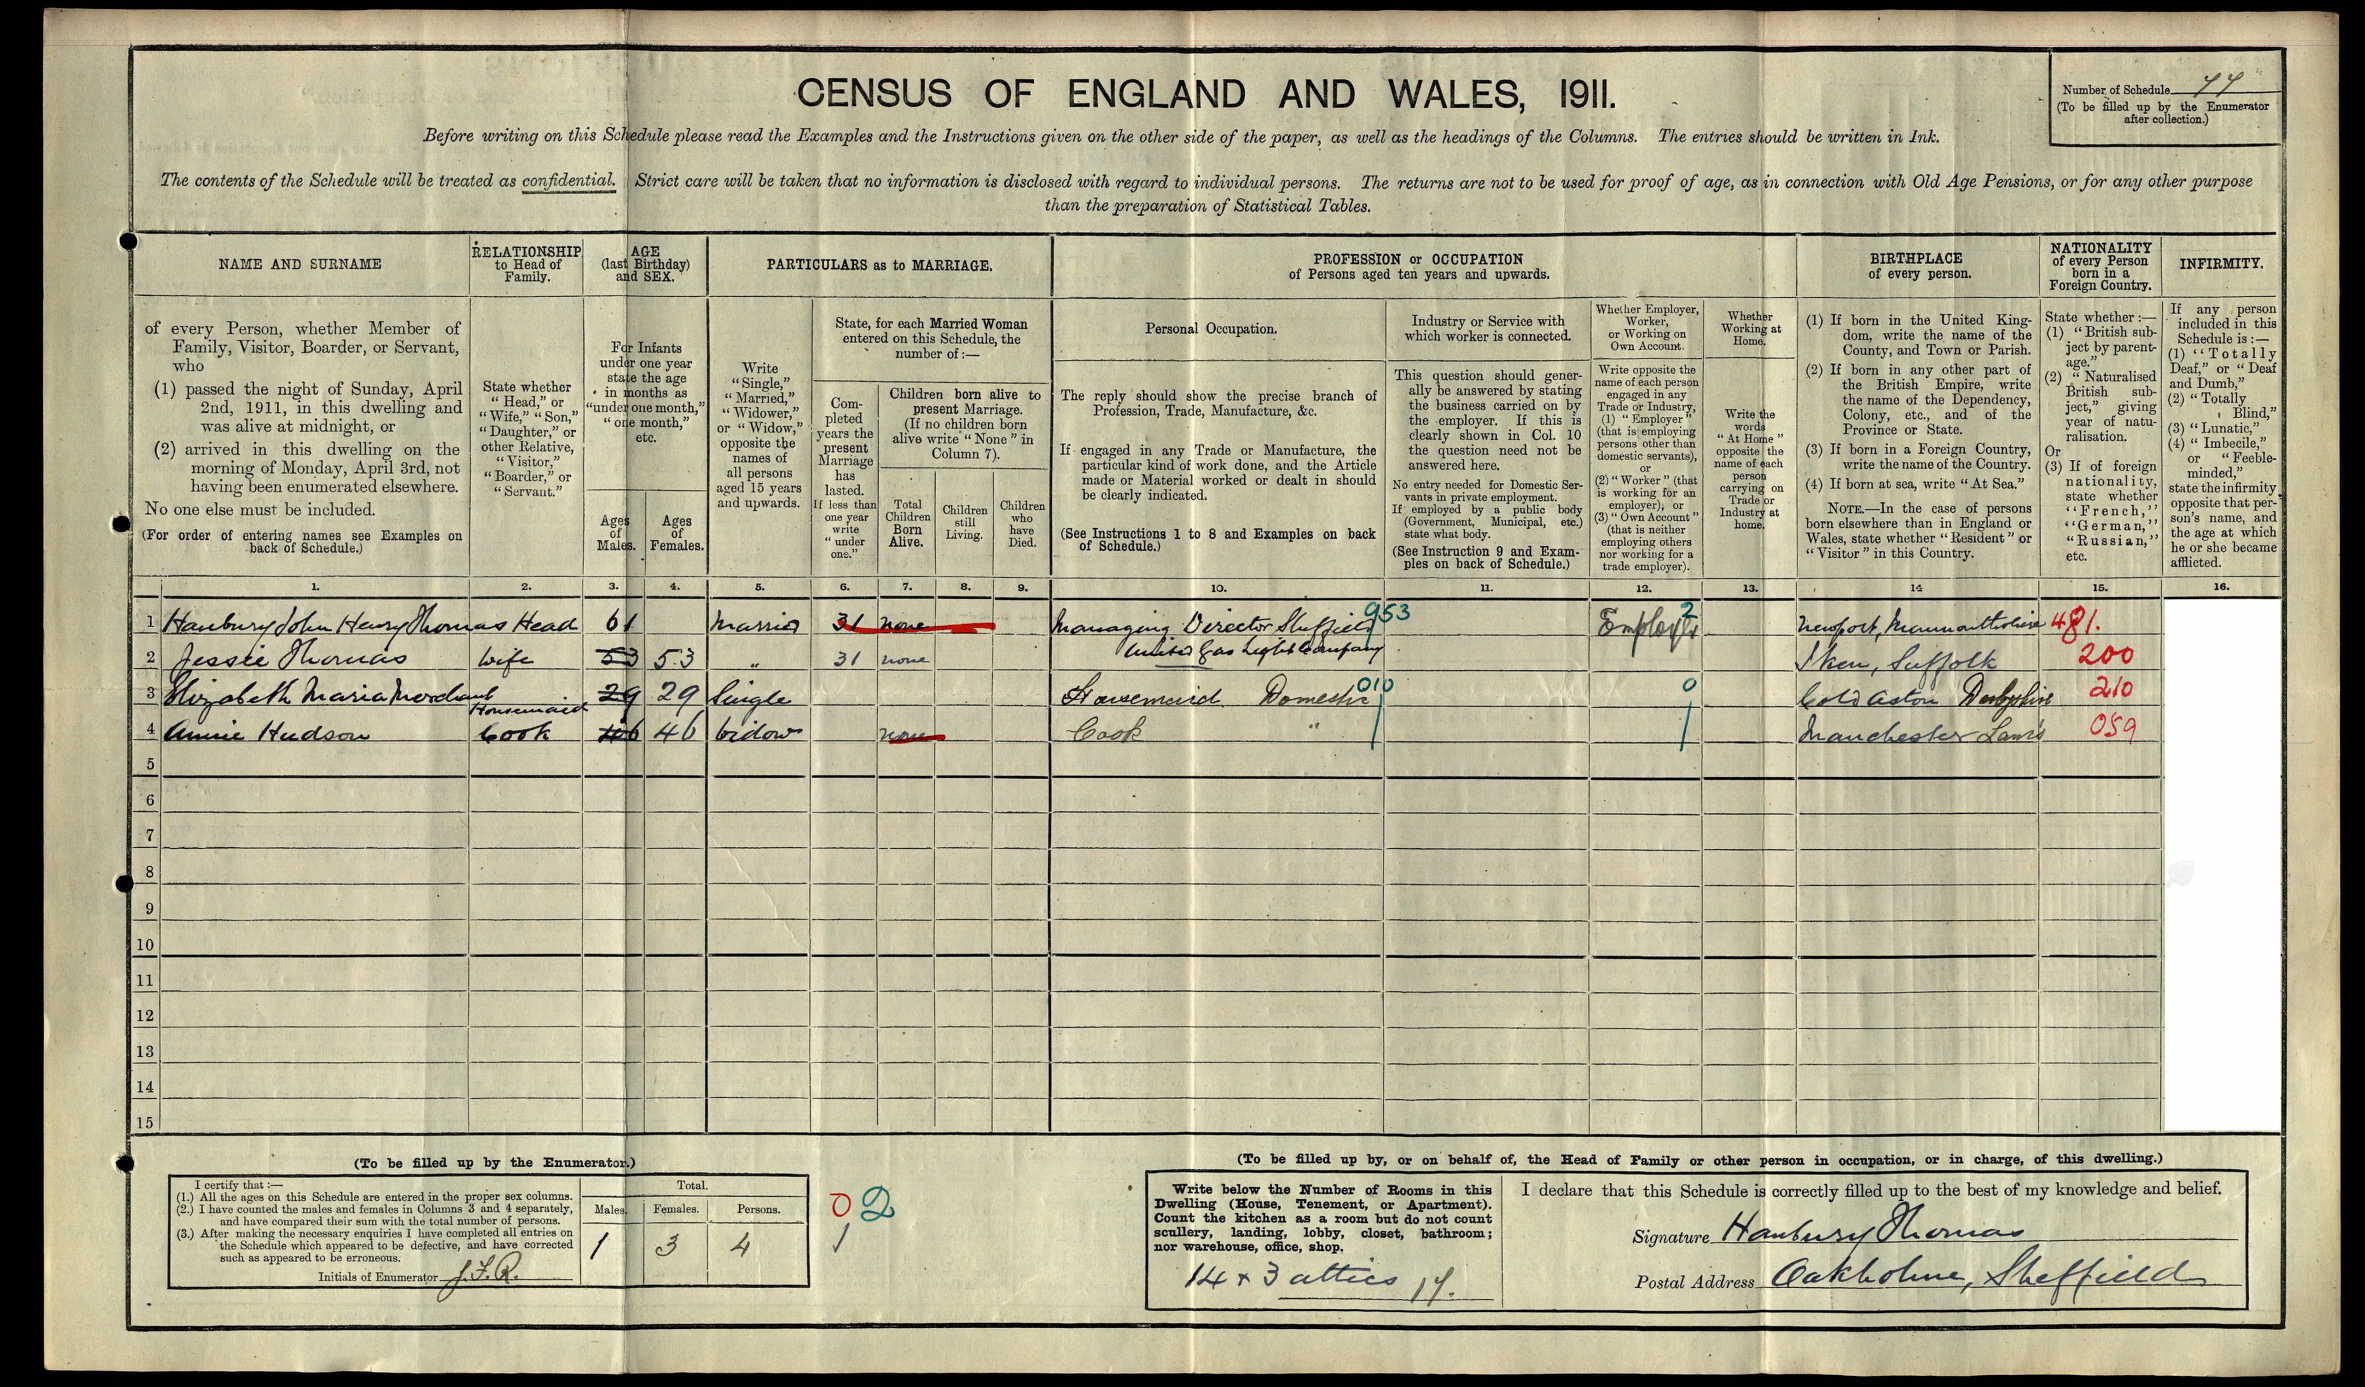 CENSUS OF ENGLAND AND WALES, 1911.
Number of Schedule 77
(To be filled up by the Enumerator
after collection.)
Before writing on this Schedule please read the Examples and the Instructions given on the other side of the paper, as well as the headings of the Columns. The entries should be written in Ink.
The contents of the Schedule will be treated as confidential. Strict care will be taken that no information is disclosed with regard to individual persons. The returns are not to be used for proof of age, as in connection with Old Age Pensions, or for any other purpose
than the preparation of Statistical Tables.
NAME AND SURNAME
RELATIONSHIP
to Head of
Family.
AGE
(last Birthday)
and SEX.
PARTICULARS as to MARRIAGE.
PROFESSION or OCCUPATION
of Persons aged ten years and upwards.
BIRTHPLACE
of every person.
NATIONALITY
of every Person
born in a
Foreign Country.
INFIRMITY.
of every Person, whether Member of
Family, Visitor, Boarder, or Servant,
who
(1) passed the night of Sunday, April
2nd, 1911, in this dwelling and
was alive at midnight, or
(2) arrived in this dwelling on the
morning of Monday, April 3rd, not
having been enumerated elsewhere.
No one else must be included.
(For order of entering names see Examples on
back of Schedule.)
State whether
"Head," or
"Wife," "Son,"
"Daughter," or
other Relative,
"Visitor,"
"Boarder," or
"Servant."
For Infants
under one year
state the age
in months as
"under one month,"
"one month,"
etc.
Ages
of
Males.
Ages
of
Females.
Write
"Single,"
"Married,"
"Widower,"
or "Widow,"
opposite the
names of
all persons
aged 15 years
and upwards.
State, for each Married Woman
entered on this Schedule, the
number of :—
Com-
pleted
years the
present
Marriage
has
lasted.
If less than
one year
write
"under
one."
Children born alive to
present Marriage.
(If no children born
alive write "None" in
Column 7).
Total
Children
Born
Alive.
Children
still
Living.
Children
who
have
Died.
Personal Occupation.
The reply should show the precise branch of
Profession, Trade, Manufacture, &c.
If engaged in any Trade or Manufacture, the
particular kind of work done, and the Article
made or Material worked or dealt in should
be clearly indicated.
(See Instructions 1 to 8 and Examples on back
of Schedule.)
Industry or Service with
which worker is connected.
This question should gener-
ally be answered by stating
the business carried on by
the employer. If this is
clearly shown in Col. 10
the question need not be
answered here.
No entry needed for Domestic Ser-
vants in private employment.
If employed by a public body
(Government, Municipal, etc.)
state what body.
(See Instruction 9 and Exam-
ples on back of Schedule.)
Whether Employer,
Worker,
or Working on
Own Account.
Write opposite the
name of each person
engaged in any
Trade or Industry,
(1) "Employer"
(that is employing
persons other than
domestic servants),
or
(2) "Worker" (that
is working for an
employer), or
(3) "Own Account"
(that is neither
employing others
nor working for a
trade employer).
Whether
Working at
Home.
Write the
words
"At Home"
opposite the
name of each
person
carrying on
Trade or
Industry at
home.
(1) If born in the United King-
dom, write the name of the
County, and Town or Parish.
(2) If born in any other part of
the British Empire, write
the name of the Dependency,
Colony, etc., and of the
Province or State.
(3) If born in a Foreign Country,
write the name of the Country.
(4) If born at sea, write "At Sea."
NOTE.—In the case of persons
born elsewhere than in England or
Wales, state whether "Resident" or
"Visitor" in this Country.
State whether :—
(1) "British sub-
ject by parent-
age."
(2) "Naturalised
British sub-
ject," giving
year of natu-
ralisation.
Or
(3) If of foreign
nationality,
state whether
"French,"
"German,"
"Russian,"
etc.
If any person
included in this
Schedule is :—
(1) "Totally
Deaf," or "Deaf
and Dumb,"
(2) "Totally
Blind,"
(3) "Lunatic,"
(4) "Imbecile,"
or "Feeble-
minded,"
state the infirmity
opposite that per-
son's name, and
the age at which
he or she became
afflicted.
1. 2. 3. 4. 5. 6. 7. 8. 9. 10. 11. 12. 13. 14 15. 16.
1 Hanbury John Henry Thomas Head 61 Married 31 none Managing Director Sheffield 953 Employer 2 Newport, Monmouthshire 481.
United Gas Light Company
2 Jessie Thomas Wife 53 53 " 31 none Iken, Suffolk 200
3 Elizabeth Maria Merchant Housemaid 29 29 Single Housemaid Domestic 010 0 Cold Aston Derbyshire 210
4 Annie Hudson Cook 46 46 Widow none Cook " Manchester Lancs 059
5
6
7
8
9
10
11
12
13
14
15
(To be filled up by the Enumerator.)
I certify that :—
(1.) All the ages on this Schedule are entered in the proper sex columns.
(2.) I have counted the males and females in Columns 3 and 4 separately,
and have compared their sum with the total number of persons.
(3.) After making the necessary enquiries I have completed all entries on
the Schedule which appeared to be defective, and have corrected
such as appeared to be erroneous.
Initials of Enumerator J.F.R.
Total.
Males. Females. Persons.
1 3 4
0 2
1
(To be filled up by, or on behalf of, the Head of Family or other person in occupation, or in charge, of this dwelling.)
Write below the Number of Rooms in this
Dwelling (House, Tenement, or Apartment).
Count the kitchen as a room but do not count
scullery, landing, lobby, closet, bathroom;
nor warehouse, office, shop.
14 + 3 attics 17.
I declare that this Schedule is correctly filled up to the best of my knowledge and belief.
Signature Hanbury Thomas
Postal Address Oakholme, Sheffield